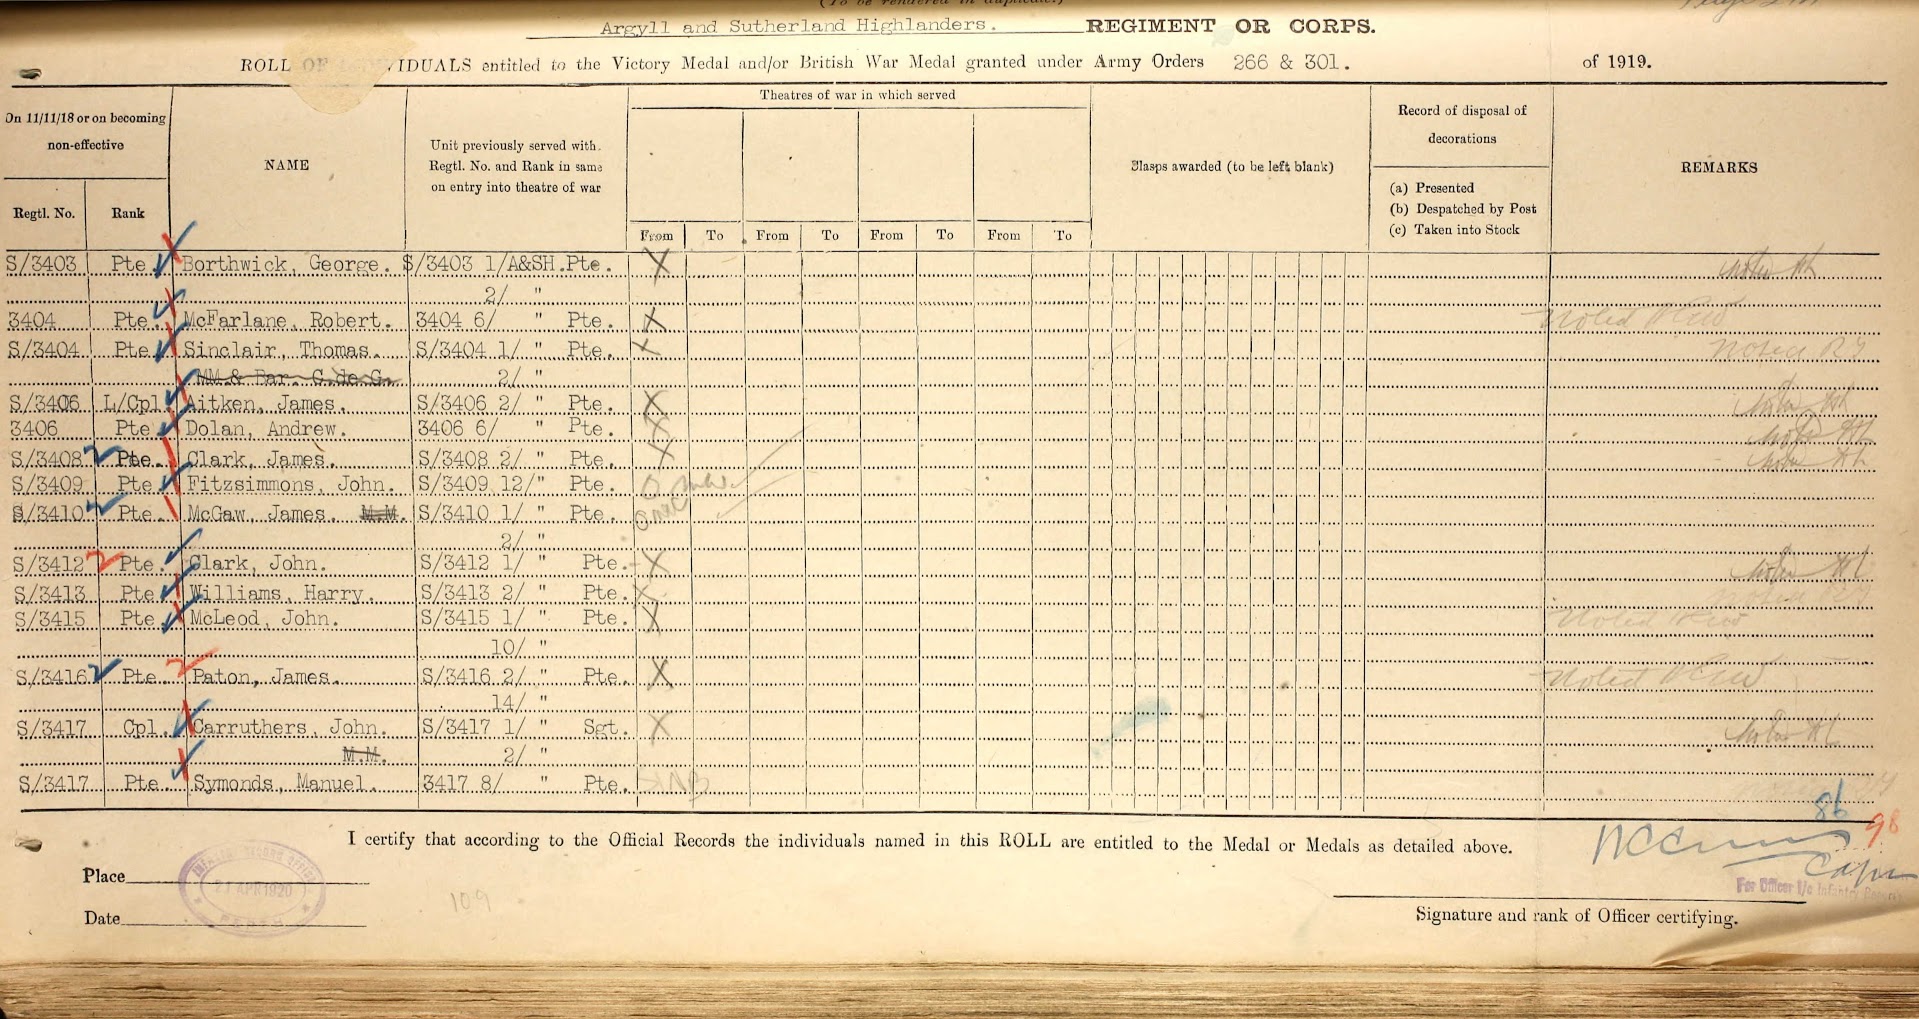 (To be rendered in duplicate.)
Argyll and Sutherland Highlanders. REGIMENT OR CORPS.
ROLL OF INDIVIDUALS entitled to the Victory Medal and/or British War Medal granted under Army Orders 266 & 301. of 1919.
On 11/11/18 or on becoming non-effective
Regtl. No.
Rank
NAME
Unit previously served with. Regtl. No. and Rank in same on entry into theatre of war
Theatres of war in which served
From To From To From To From To
Clasps awarded (to be left blank)
Record of disposal of decorations
(a) Presented
(b) Despatched by Post
(c) Taken into Stock
REMARKS
S/3403 Pte. Borthwick, George. S/3403 1/A&SH. Pte. X Noted
2/ "
3404 Pte. McFarlane, Robert. 3404 6/ " Pte. X Noted
S/3404 Pte. Sinclair, Thomas. S/3404 1/ " Pte. X Noted
MM & Bar. C.de G. 2/ "
S/3406 L/Cpl. Aitken, James. S/3406 2/ " Pte. X Noted
3406 Pte. Dolan, Andrew. 3406 6/ " Pte. X Noted
S/3408 Pte. Clark, James. S/3408 2/ " Pte. X Noted
S/3409 Pte. Fitzsimmons, John. S/3409 12/ " Pte.
S/3410 Pte. McGaw, James. M.M. S/3410 1/ " Pte.
2/ "
S/3412 Pte. Clark, John. S/3412 1/ " Pte. X Noted
S/3413 Pte. Williams, Harry. S/3413 2/ " Pte. X Noted
S/3415 Pte. McLeod, John. S/3415 1/ " Pte. X Noted
10/ "
S/3416 Pte. Paton, James. S/3416 2/ " Pte. X Noted
14/ "
S/3417 Cpl. Carruthers, John. S/3417 1/ " Sgt. X Noted
M.M. 2/ "
S/3417 Pte. Symonds, Manuel. 3417 8/ " Pte.
86
98
I certify that according to the Official Records the individuals named in this ROLL are entitled to the Medal or Medals as detailed above.
Capt
For Officer i/c Infantry Records
Place
INFANTRY RECORD OFFICE
21 APR 1920
PERTH
109
Date
Signature and rank of Officer certifying.